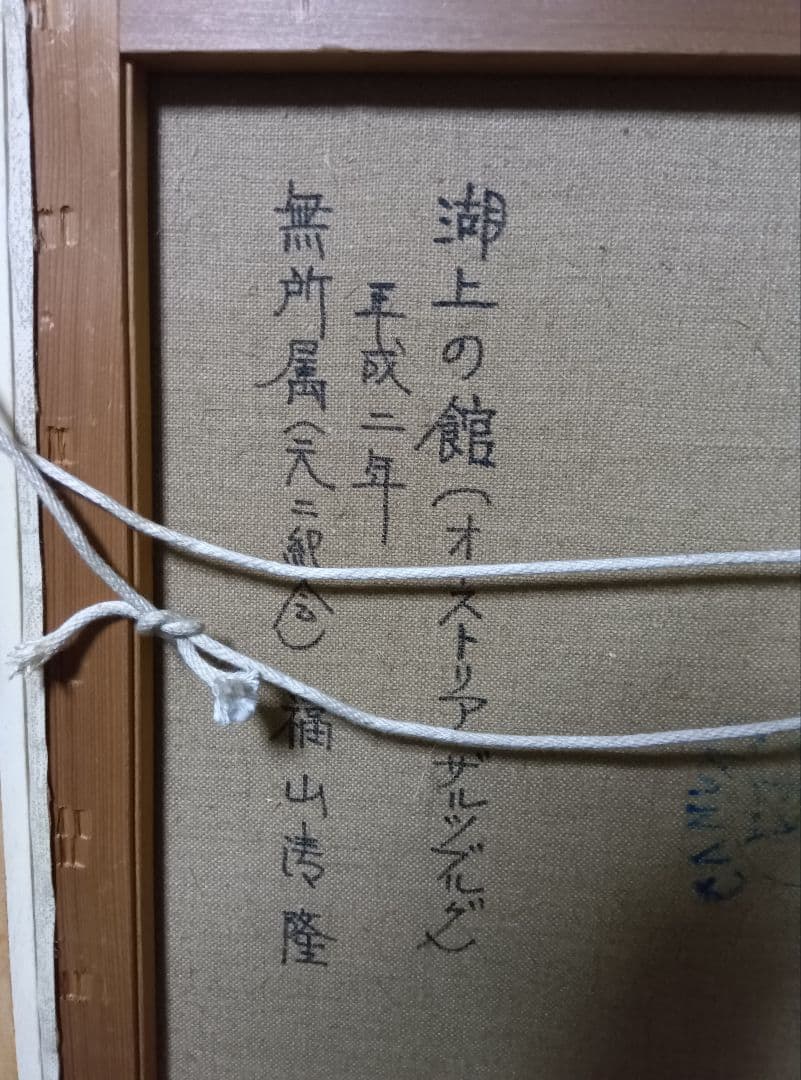 湖上の館(オーストリア ザルツブルグ)
平成二年
無所属(元二紀会) 福山清隆